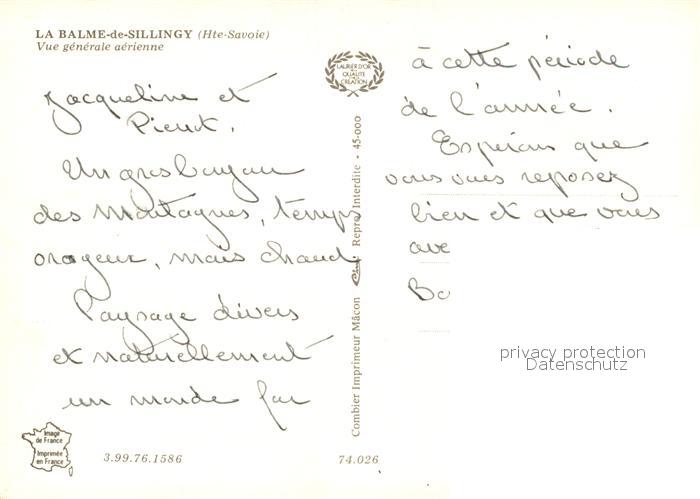 LA BALME-de-SILLINGY (Hte-Savoie)
Vue générale aérienne
LAURIER D'OR
DE LA
QUALITÉ
DE LA
CRÉATION
Jacqueline et
Pierrot.
Un gros bonjour
des Montagnes, temps
orageux, mais chaud
Paysage divers
et naturellement
un monde fou
à cette période
de l'année.
Espérons que
vous vous reposez
bien et que vous
ave
Bo
Combier Imprimeur Mâcon
Repro. Interdite - 45-000
privacy protection
Datenschutz
Image
de France
Imprimée
en France
3.99.76.1586
74.026